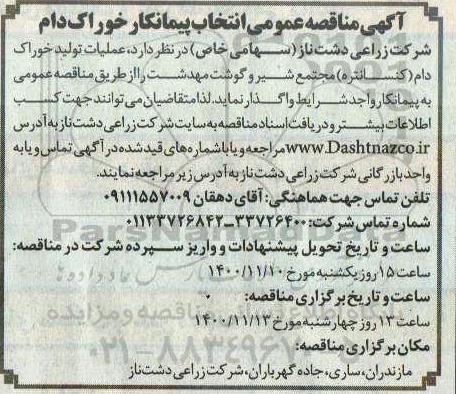 آگهی مناقصه عمومی انتخاب پیمانکار خوراک دام
شرکت زراعی دشت ناز (سهامی خاص) در نظر دارد، عملیات تولید خوراک
دام (کنسانتره) مجتمع شیر و گوشت مهدشت را از طریق مناقصه عمومی
به پیمانکار واجد شرایط واگذار نماید. لذا متقاضیان می توانند جهت کسب
اطلاعات بیشتر و دریافت اسناد مناقصه به سایت شرکت زراعی دشت ناز به آدرس
www.Dashtnazco.ir مراجعه و یا با شماره های قید شده در آگهی تماس و یا به
واحد بازرگانی شرکت زراعی دشت ناز به آدرس زیر مراجعه نمایند.
تلفن تماس جهت هماهنگی: آقای دهقان ۰۹۱۱۱۵۵۷۰۰۹
شماره تماس شرکت: ۳۳۷۲۶۴۰۰-۰۱۱۳۳۷۲۶۸۴۲
ساعت و تاریخ تحویل پیشنهادات و واریز سپرده شرکت در مناقصه:
ساعت ۱۵ روز یکشنبه مورخ ۱۴۰۰/۱۱/۱۰
ساعت و تاریخ برگزاری مناقصه:
ساعت ۱۳ روز چهارشنبه مورخ ۱۴۰۰/۱۱/۱۳
مکان برگزاری مناقصه:
مازندران، ساری، جاده گهرباران، شرکت زراعی دشت ناز
ParsNamadData